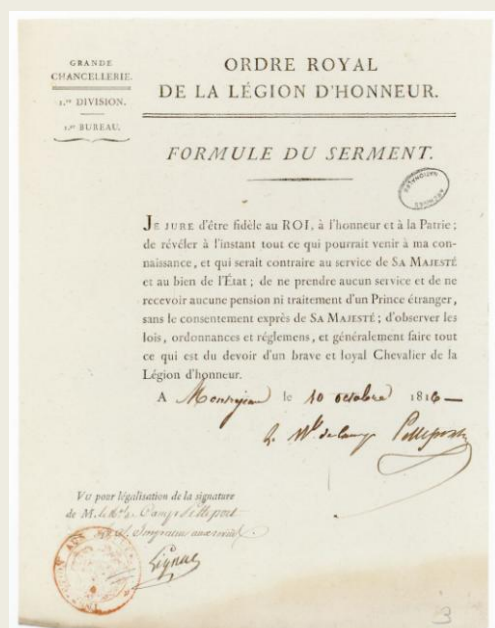 GRANDE
CHANCELLERIE.
1.re DIVISION.
1.er BUREAU.
ORDRE ROYAL
DE LA LÉGION D'HONNEUR.
FORMULE DU SERMENT.
JE JURE d'être fidèle au ROI, à l'honneur et à la Patrie;
de révéler à l'instant tout ce qui pourrait venir à ma con-
naissance, et qui serait contraire au service de SA MAJESTÉ
et au bien de l'État; de ne prendre aucun service et de ne
recevoir aucune pension ni traitement d'un Prince étranger,
sans le consentement exprès de SA MAJESTÉ; d'observer les
lois, ordonnances et réglemens, et généralement faire tout
ce qui est du devoir d'un brave et loyal Chevalier de la
Légion d'honneur.
A le 10 octobre 1816
de camp Pelleport
Vu pour légalisation de la signature
de M. de Camp Pelleport
3